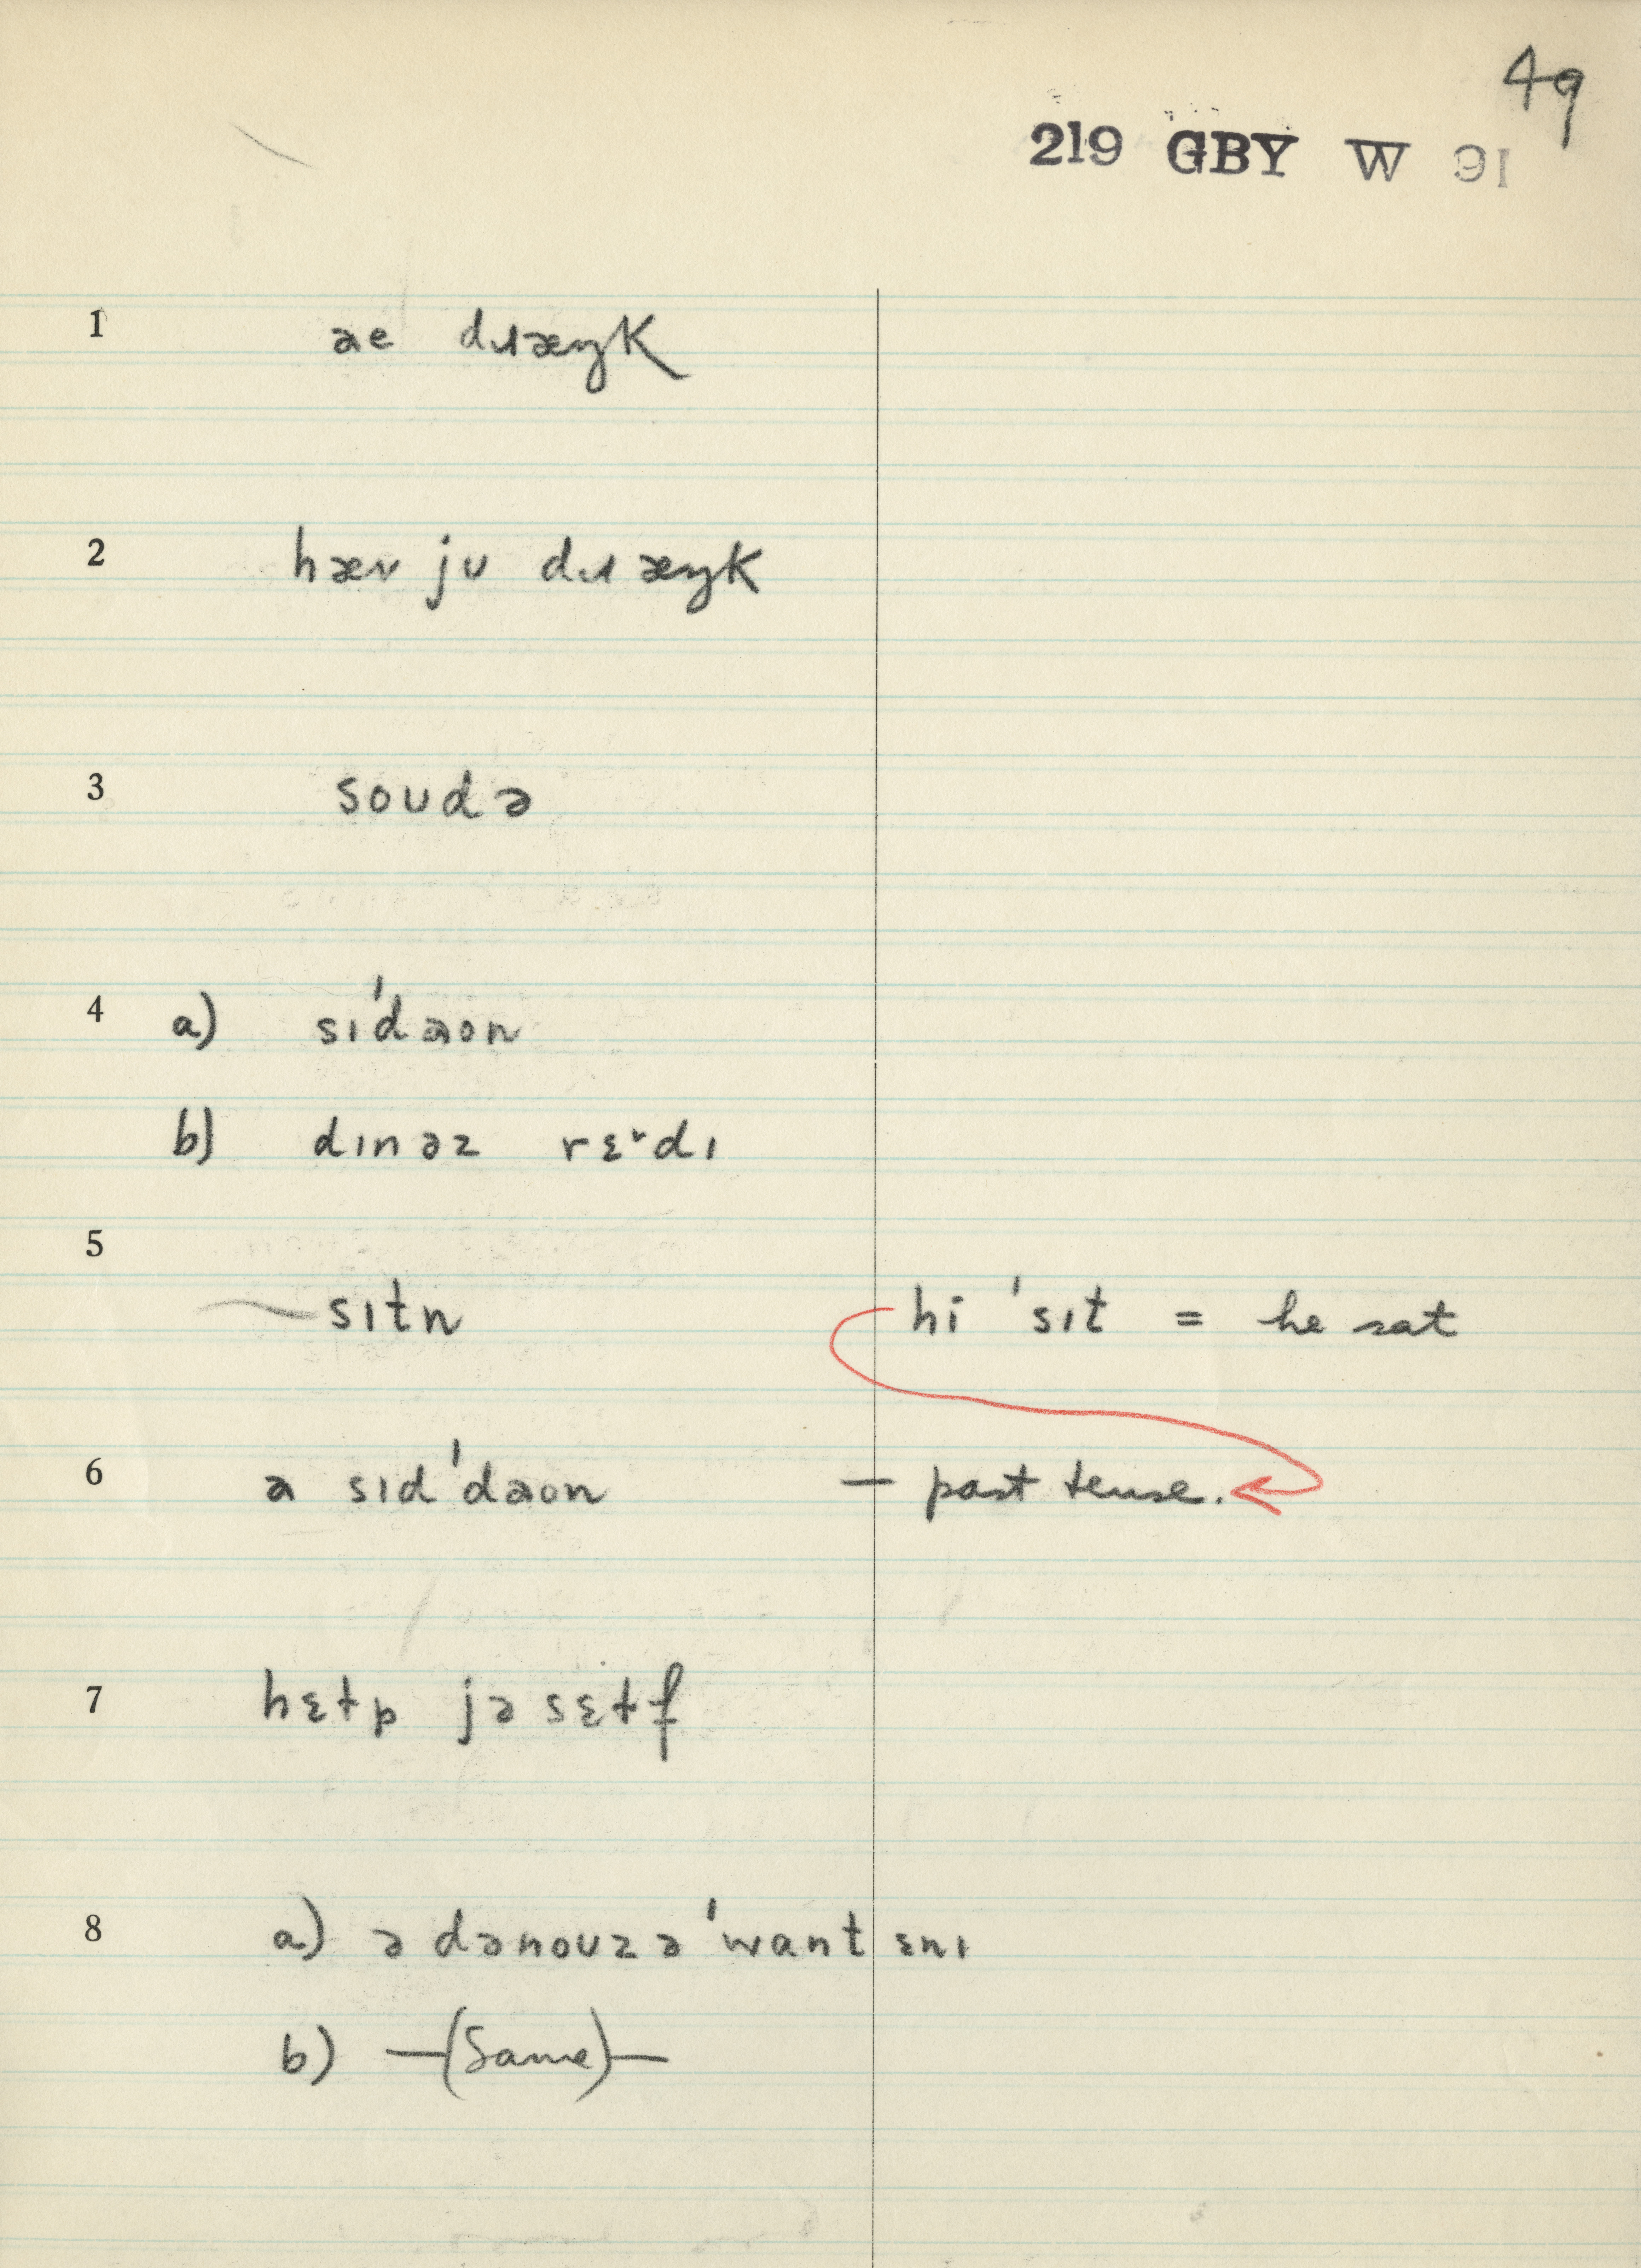 49
219 GBY W 91
1 ae dɹæŋk
2 hæv jʊ dɹæŋk
3 soʊdə
4 a) sɪˈdaon
b) dɪnəz rɛɚdɪ
5 sɪtn hi ˈsɪt = he sat
6 a sɪdˈdaon — past tense.
7 hɛɫp jəsɛɫf
8 a) ə dənoʊzə ˈwant ɛnɪ
b) —(Same)—